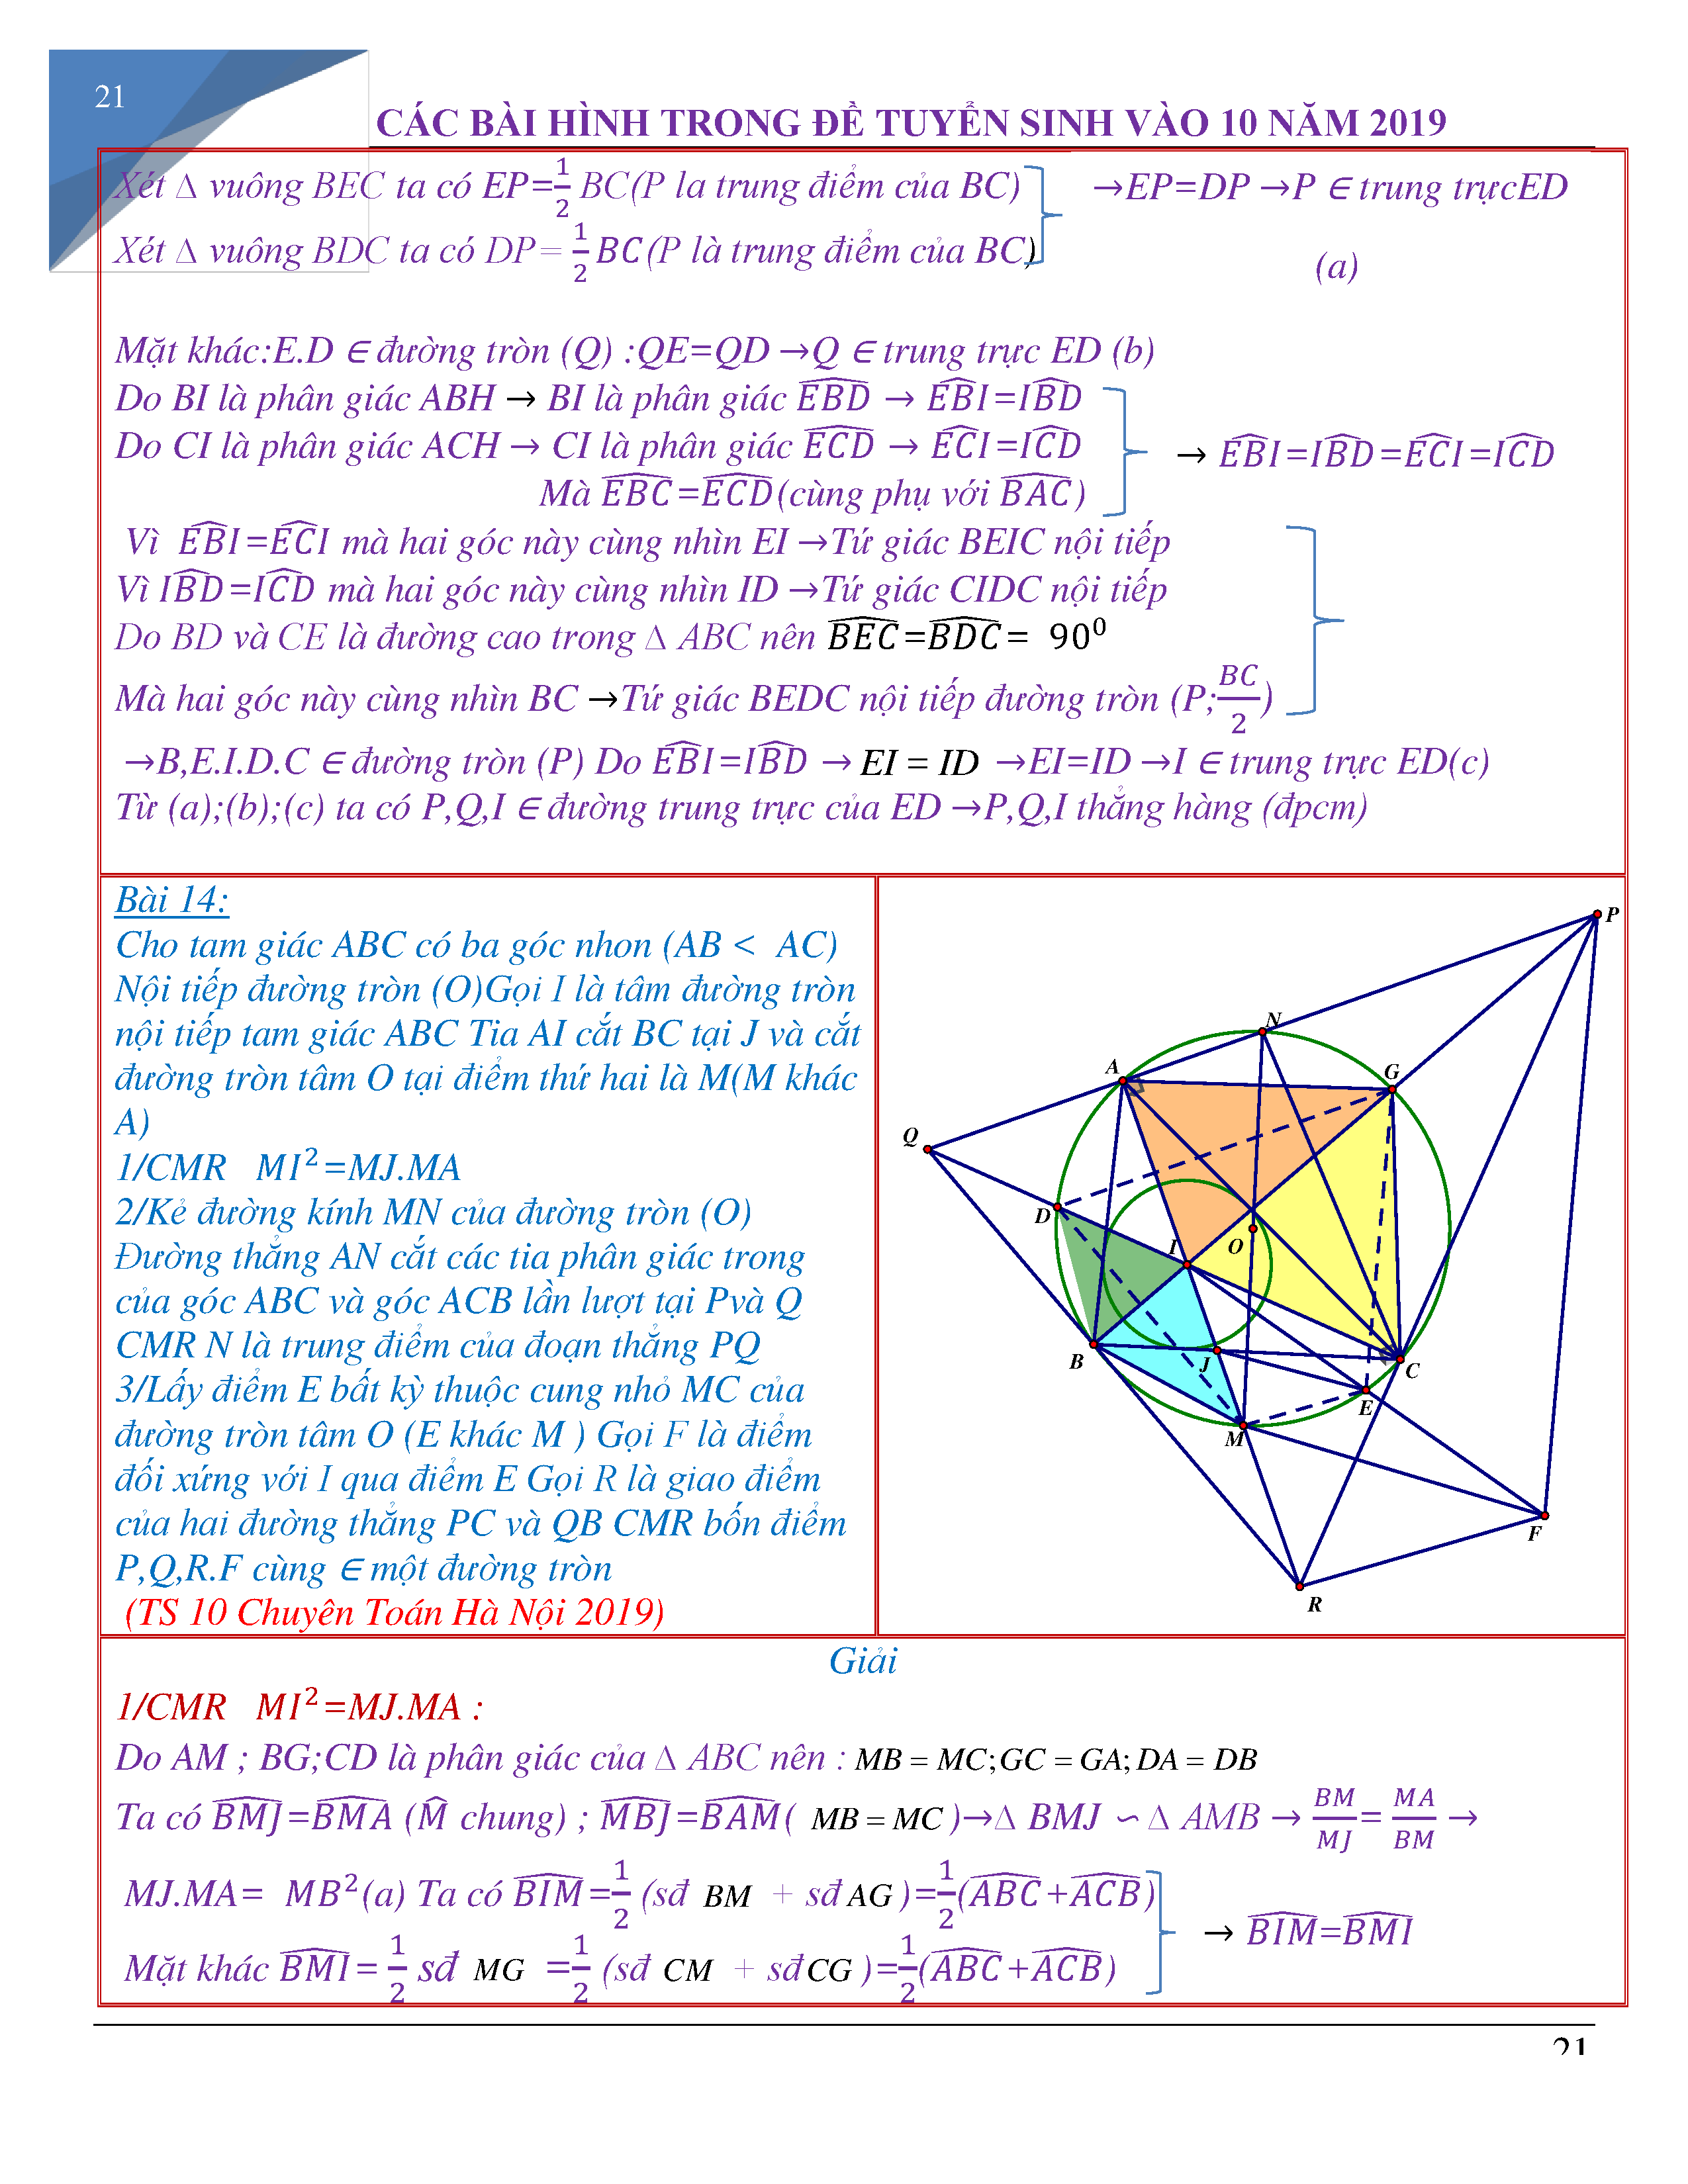 21
CÁC BÀI HÌNH TRONG ĐỀ TUYỂN SINH VÀO 10 NĂM 2019
Xét ∆ vuông BEC ta có EP=1/2 BC(P la trung điểm của BC) →EP=DP →P ∈ trung trựcED
Xét ∆ vuông BDC ta có DP= 1/2 BC(P là trung điểm của BC) (a)
Mặt khác:E.D ∈ đường tròn (Q) :QE=QD →Q ∈ trung trực ED (b)
Do BI là phân giác ABH → BI là phân giác \widehat{EBD} → \widehat{EB}I=I\widehat{BD}
Do CI là phân giác ACH → CI là phân giác \widehat{ECD} → \widehat{EC}I=I\widehat{CD} → \widehat{EB}I=I\widehat{BD}=\widehat{EC}I=I\widehat{CD}
Mà \widehat{EBC}=\widehat{ECD}(cùng phụ với \widehat{BAC})
Vì \widehat{EB}I=\widehat{EC}I mà hai góc này cùng nhìn EI →Tứ giác BEIC nội tiếp
Vì I\widehat{BD}=I\widehat{CD} mà hai góc này cùng nhìn ID →Tứ giác CIDC nội tiếp
Do BD và CE là đường cao trong ∆ ABC nên \widehat{BEC}=\widehat{BDC}= 90⁰
Mà hai góc này cùng nhìn BC →Tứ giác BEDC nội tiếp đường tròn (P;BC/2)
→B,E.I.D.C ∈ đường tròn (P) Do \widehat{EB}I=I\widehat{BD} → EI = ID →EI=ID →I ∈ trung trực ED(c)
Từ (a);(b);(c) ta có P,Q,I ∈ đường trung trực của ED →P,Q,I thẳng hàng (đpcm)
Bài 14:
Cho tam giác ABC có ba góc nhon (AB < AC)
Nội tiếp đường tròn (O)Gọi I là tâm đường tròn
nội tiếp tam giác ABC Tia AI cắt BC tại J và cắt
đường tròn tâm O tại điểm thứ hai là M(M khác
A)
1/CMR MI²=MJ.MA
2/Kẻ đường kính MN của đường tròn (O)
Đường thẳng AN cắt các tia phân giác trong
của góc ABC và góc ACB lần lượt tại Pvà Q
CMR N là trung điểm của đoạn thẳng PQ
3/Lấy điểm E bất kỳ thuộc cung nhỏ MC của
đường tròn tâm O (E khác M ) Gọi F là điểm
đối xứng với I qua điểm E Gọi R là giao điểm
của hai đường thẳng PC và QB CMR bốn điểm
P,Q,R.F cùng ∈ một đường tròn
(TS 10 Chuyên Toán Hà Nội 2019)
P
N
A
G
Q
D
I
O
B
J
C
E
M
F
R
Giải
1/CMR MI²=MJ.MA :
Do AM ; BG;CD là phân giác của ∆ ABC nên : MB = MC;GC = GA; DA = DB
Ta có \widehat{BMJ}=\widehat{BMA} (\widehat{M} chung) ; \widehat{MBJ}=\widehat{BAM}( MB = MC )→∆ BMJ ∽ ∆ AMB → BM/MJ= MA/BM →
MJ.MA= MB²(a) Ta có \widehat{BIM}=1/2 (sđ BM + sđ AG )=1/2(\widehat{ABC}+\widehat{ACB})
→ \widehat{BIM}=\widehat{BMI}
Mặt khác \widehat{BMI}= 1/2 sđ MG =1/2 (sđ CM + sđCG )=1/2(\widehat{ABC}+\widehat{ACB})
21